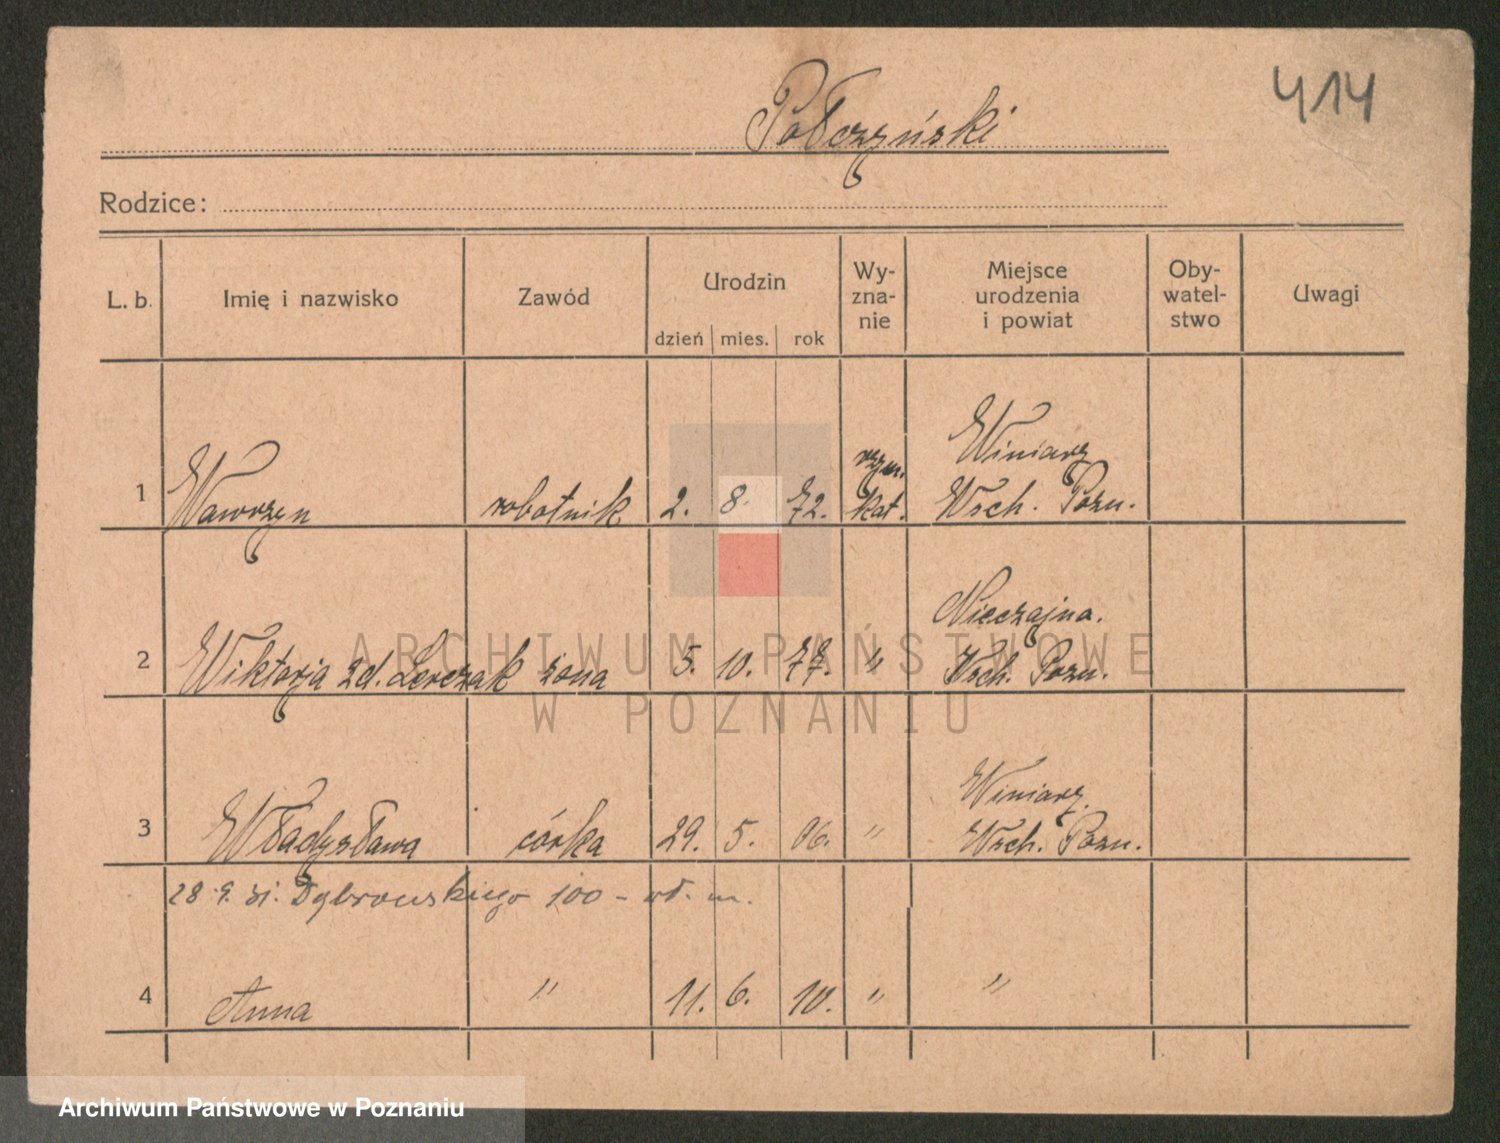 414
Połczyński
Rodzice:
L. b. Imię i nazwisko Zawód Urodzin dzień mies. rok Wy-zna-nie Miejsce urodzenia i powiat Oby-watel-stwo Uwagi
1 Wawrzyn robotnik 2. 8. 72. rzym. kat. Winiary Wsch. Pozn.
2 Wiktorja zd. Lerczak żona 5. 10. 77. " Nieczajna. Wsch. Pozn.
3 Władysława córka 29. 5. 06. " Winiary. Wsch. Pozn.
28. 9. 31. Dąbrowskiego 100 - wł. m.
4 Anna " 11. 6. 10. " "
ARCHIWUM PAŃSTWOWE
W POZNANIU
Archiwum Państwowe w Poznaniu